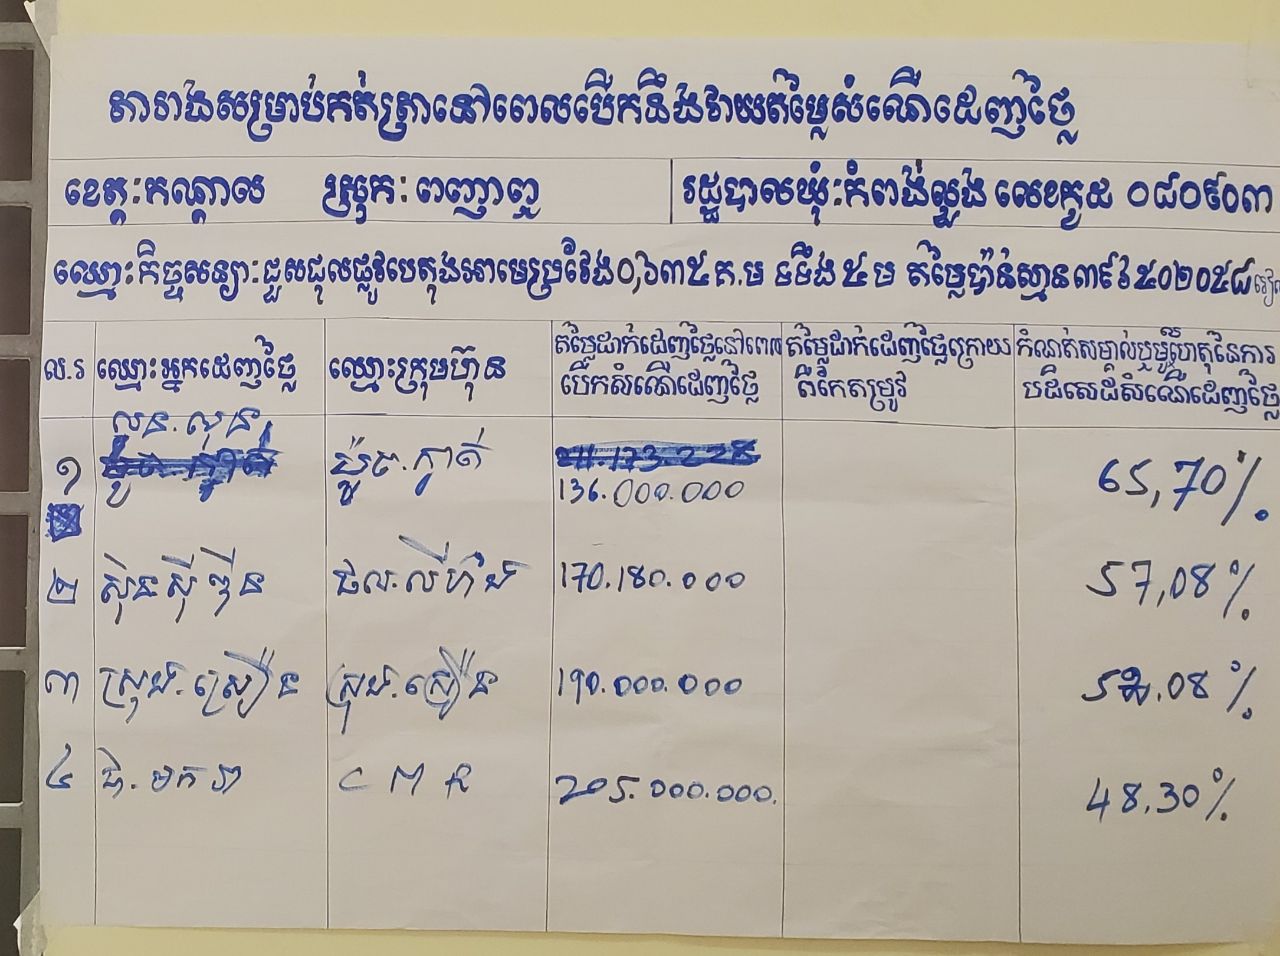 តារាងសម្រាប់កត់ត្រានៅពេលបើកនឹងវាយតម្លៃសំណើដេញថ្លៃ
ខេត្តៈកណ្តាល ស្រុកៈពញាឮ រដ្ឋបាលឃុំៈកំពង់ហ្លួង លេខកូដ ០៨០៩០៣
ឈ្មោះកិច្ចសន្យាៈជួសជុលផ្លូវបេតុងអាមេប្រវែង០,៦៣៥គ.ម ទទឹង៥ម តម្លៃប៉ាន់ស្មាន៣៩៦៥០២០៥៨រៀល
ល.រ ឈ្មោះអ្នកដេញថ្លៃ ឈ្មោះក្រុមហ៊ុន តម្លៃដាក់ដេញថ្លៃនៅពេលបើកសំណើដេញថ្លៃ តម្លៃដាក់ដេញថ្លៃក្រោយពីកែតម្រូវ កំណត់សម្គាល់ឬមូលហេតុនៃការបដិសេដសំណើដេញថ្លៃ
១ លួន.លុន ប៉ូច.ក្វាត់ 136.000.000 65,70%
២ ស៊ិនស៊ីប៊ុីន ផល.លីហ៊ង់ 170.180.000 57,08%
៣ ស្រុង.ស្រឿន ស្រុង.ស្រឿន 190.000.000 52.08%
៤ ធី.មករា CMR 205.000.000. 48.30%